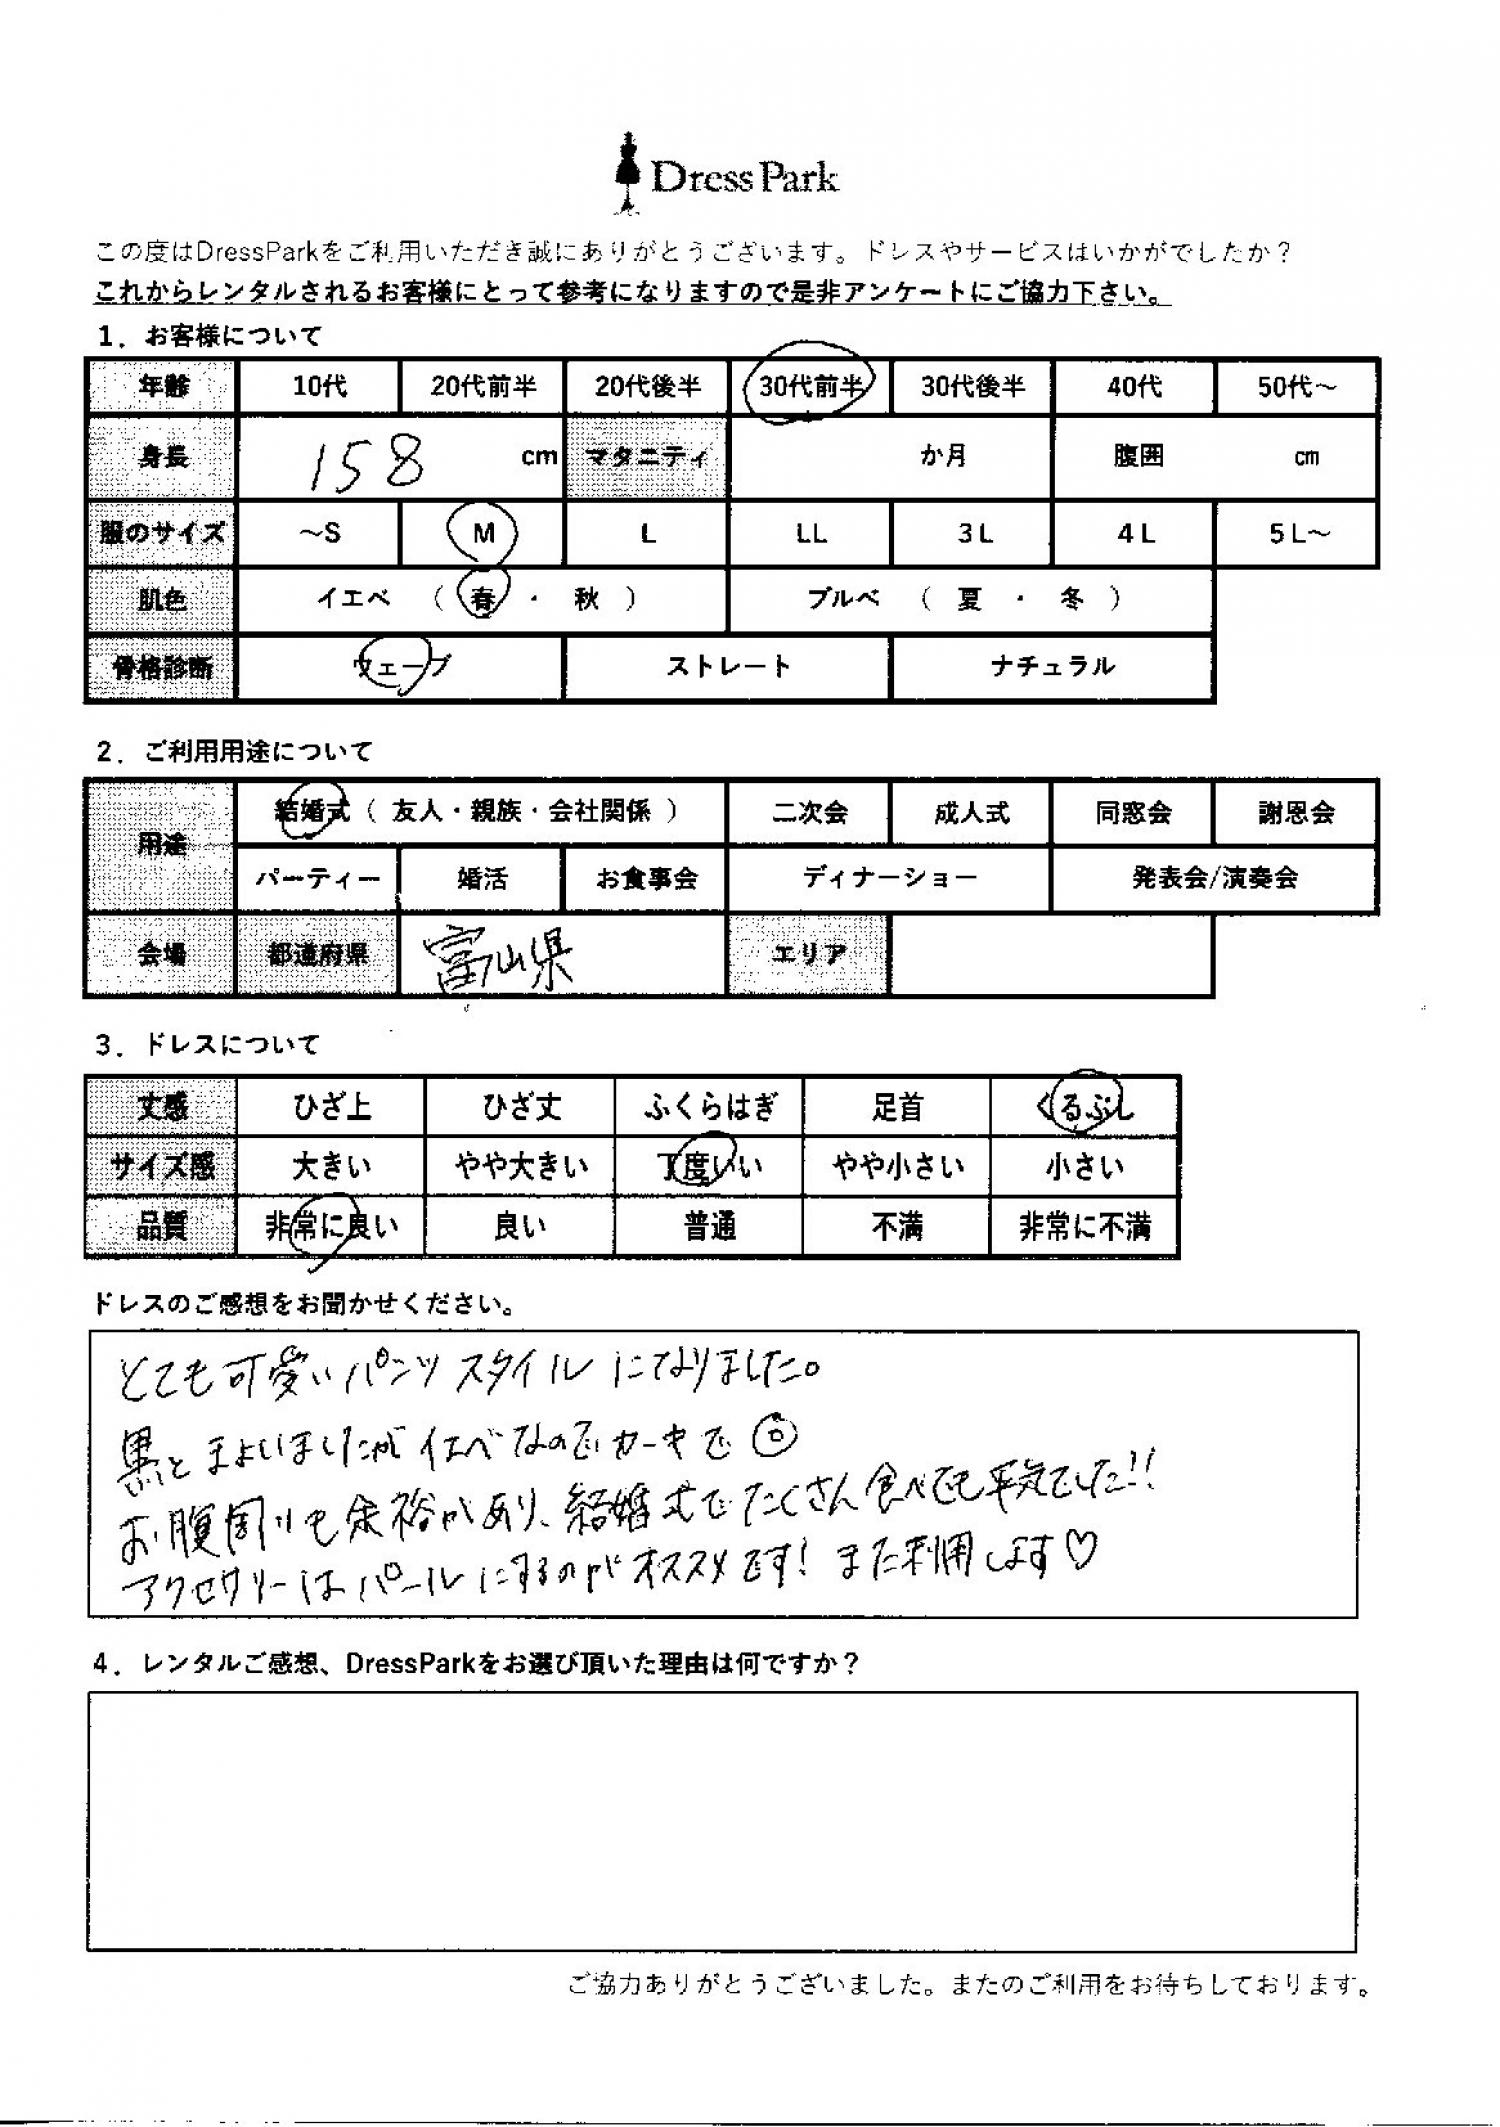 Dress Park
この度はDressParkをご利用いただき誠にありがとうございます。ドレスやサービスはいかがでしたか？
これからレンタルされるお客様にとって参考になりますので是非アンケートにご協力下さい。
1．お客様について
年齢 10代 20代前半 20代後半 30代前半 30代後半 40代 50代～
身長 158 cm マタニティ か月 腹囲 cm
服のサイズ ～S M L LL 3L 4L 5L～
肌色 イエベ （ 春 ・ 秋 ） ブルベ （ 夏 ・ 冬 ）
骨格診断 ウェーブ ストレート ナチュラル
2．ご利用用途について
用途 結婚式（ 友人・親族・会社関係 ） 二次会 成人式 同窓会 謝恩会
パーティー 婚活 お食事会 ディナーショー 発表会/演奏会
会場 都道府県 富山県 エリア
3．ドレスについて
丈感 ひざ上 ひざ丈 ふくらはぎ 足首 くるぶし
サイズ感 大きい やや大きい 丁度いい やや小さい 小さい
品質 非常に良い 良い 普通 不満 非常に不満
ドレスのご感想をお聞かせください。
とても可愛いパンツスタイルになりました。
黒とまよいましたがイエベなのでカーキで◎
お腹周りも余裕があり、結婚式でたくさん食べても平気でした!!
アクセサリーはパールにするのがオススメです! また利用します♡
4．レンタルご感想、DressParkをお選び頂いた理由は何ですか？
ご協力ありがとうございました。またのご利用をお待ちしております。